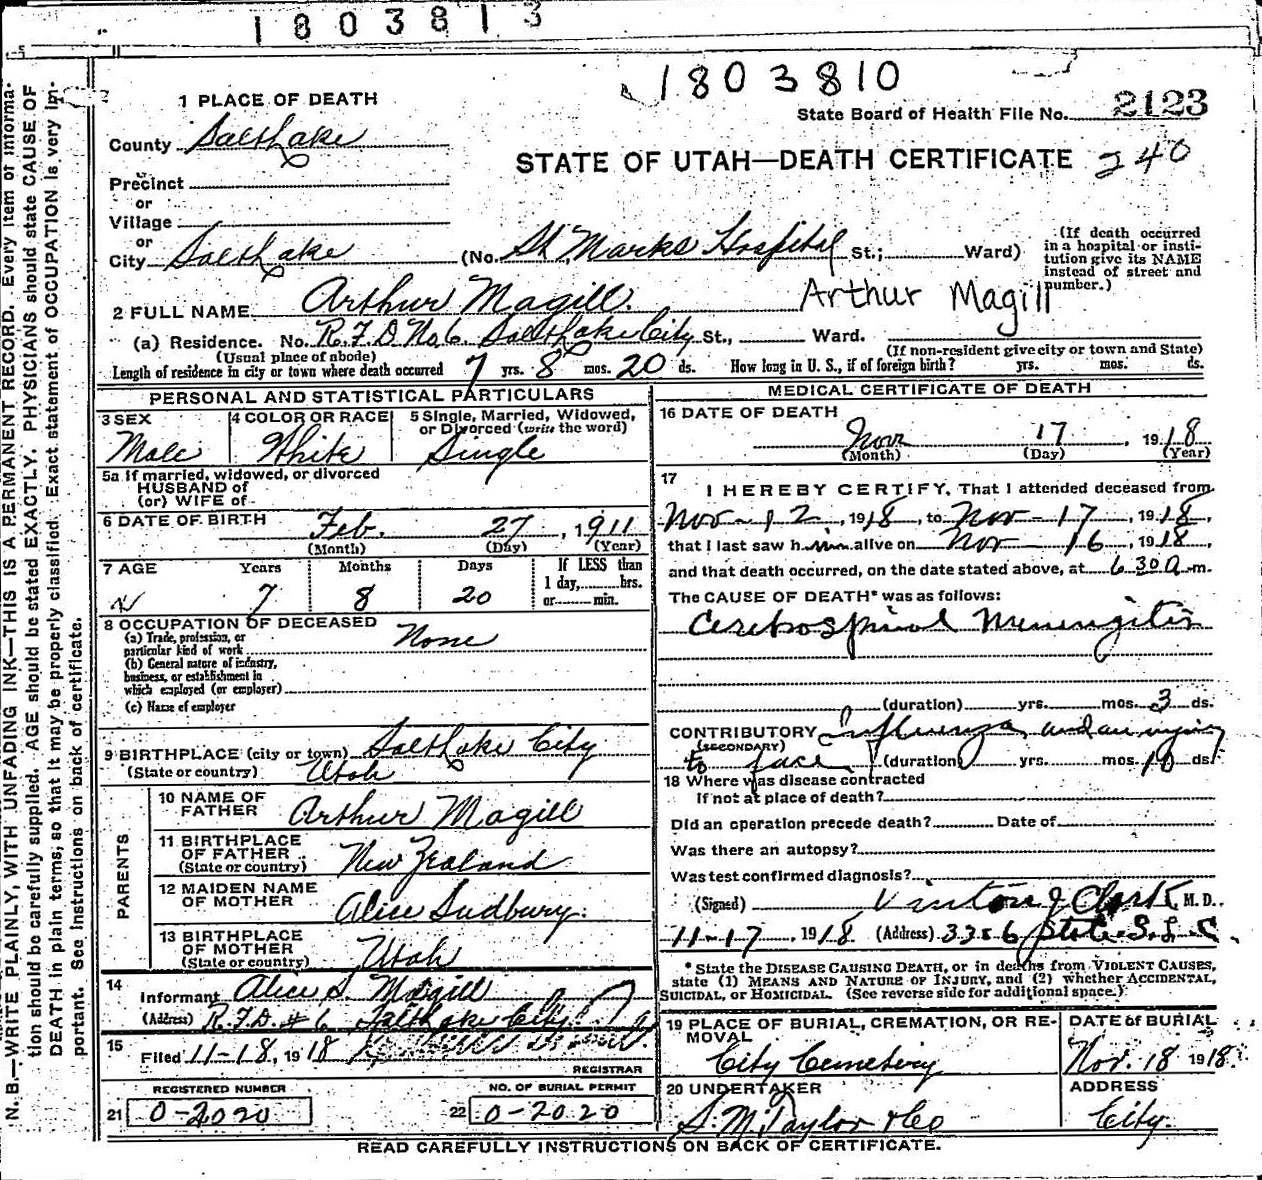 1803813
1803810
State Board of Health File No. 2123
STATE OF UTAH—DEATH CERTIFICATE 240
1 PLACE OF DEATH
County Salt Lake
Precinct
or
Village
or
City Salt Lake (No. St. Marks Hospital St.; Ward) (If death occurred in a hospital or institution give its NAME instead of street and number.)
2 FULL NAME Arthur Magill. Arthur Magill
(a) Residence. No. R.F.D. No 6 Salt Lake City St., Ward.
(Usual place of abode) (If non-resident give city or town and State)
Length of residence in city or town where death occurred 7 yrs. 8 mos. 20 ds. How long in U. S., if of foreign birth? yrs. mos. ds.
PERSONAL AND STATISTICAL PARTICULARS
3 SEX 4 COLOR OR RACE 5 Single, Married, Widowed, or Divorced (write the word)
Male White Single
5a If married, widowed, or divorced
HUSBAND of
(or) WIFE of
6 DATE OF BIRTH Feb. 27, 1911
(Month) (Day) (Year)
7 AGE Years Months Days If LESS than
1 day, hrs.
or min.
7 8 20
8 OCCUPATION OF DECEASED
(a) Trade, profession, or
particular kind of work None
(b) General nature of industry,
business, or establishment in
which employed (or employer)
(c) Name of employer
9 BIRTHPLACE (city or town) Salt Lake City
(State or country) Utah
PARENTS
10 NAME OF FATHER Arthur Magill
11 BIRTHPLACE OF FATHER (State or country) New Zealand
12 MAIDEN NAME OF MOTHER Alice Sudbury.
13 BIRTHPLACE OF MOTHER (State or country) Utah
14 Informant Alice S. Magill
(Address) R.F.D. # 6 Salt Lake City
15 Filed 11-18, 1918
REGISTRAR
REGISTERED NUMBER NO. OF BURIAL PERMIT
21 0-2020 22 0-2020
MEDICAL CERTIFICATE OF DEATH
16 DATE OF DEATH
Nov 17, 1918
(Month) (Day) (Year)
17 I HEREBY CERTIFY, That I attended deceased from
Nov-12, 1918, to Nov-17, 1918,
that I last saw him alive on Nov-16, 1918,
and that death occurred, on the date stated above, at 6 30 a m.
The CAUSE OF DEATH* was as follows:
Cerebrospinal Meningitis
(duration) yrs. mos. 3 ds.
CONTRIBUTORY Influenza and an injury
(SECONDARY) to face (duration) yrs. mos. 10 ds.
18 Where was disease contracted
If not at place of death?
Did an operation precede death? Date of
Was there an autopsy?
Was test confirmed diagnosis?
(Signed) Vinton J Clark M. D.
11-17, 1918 (Address) 3356 State S. L. C.
*State the DISEASE CAUSING DEATH, or in deaths from VIOLENT CAUSES,
state (1) MEANS AND NATURE OF INJURY, and (2) whether ACCIDENTAL,
SUICIDAL, or HOMICIDAL. (See reverse side for additional space.)
19 PLACE OF BURIAL, CREMATION, OR REMOVAL DATE of BURIAL
City Cemetery Nov. 18 1918.
20 UNDERTAKER ADDRESS
S. M. Taylor & Co City.
READ CAREFULLY INSTRUCTIONS ON BACK OF CERTIFICATE.
N. B.—WRITE PLAINLY, WITH UNFADING INK—THIS IS A PERMANENT RECORD. Every item of information should be carefully supplied. AGE should be stated EXACTLY. PHYSICIANS should state CAUSE OF DEATH in plain terms, so that it may be properly classified. Exact statement of OCCUPATION is very important. See instructions on back of certificate.